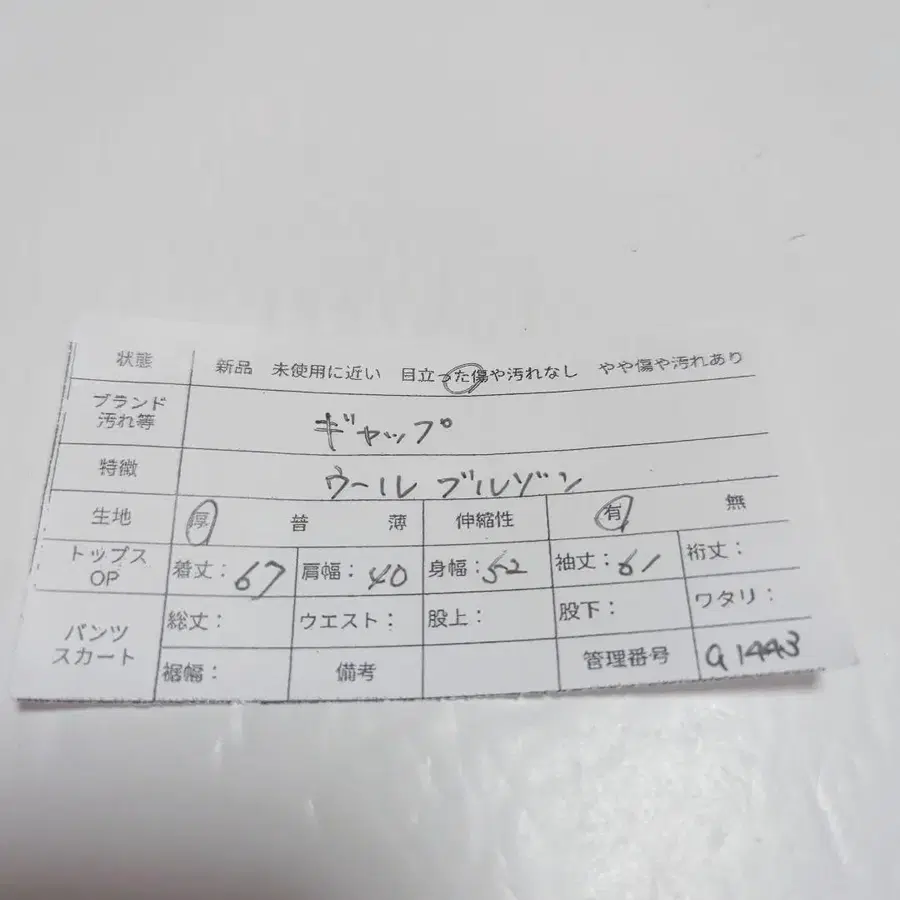 状態 新品 未使用に近い 目立った傷や汚れなし やや傷や汚れあり
ブランド
汚れ等 ギャップ
特徴 ウール ブルゾン
生地 厚 普 薄 伸縮性 有 無
トップス
OP 着丈：67 肩幅：40 身幅：52 袖丈：61 裄丈：
パンツ
スカート 総丈： ウエスト： 股上： 股下： ワタリ：
裾幅： 備考 管理番号 a1443